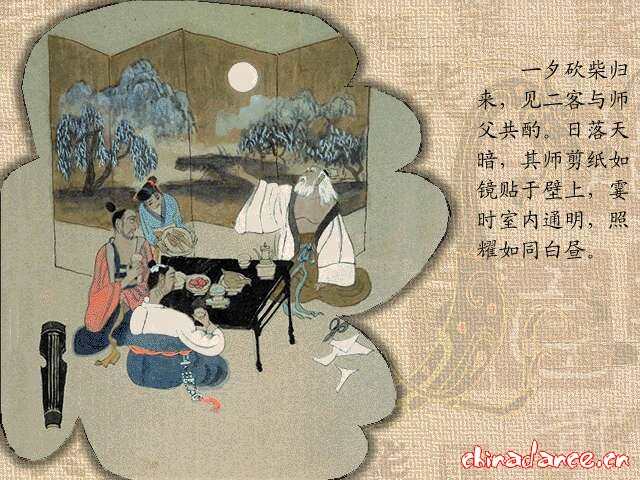 一夕砍柴归
来，见二客与师
父共酌。日落天
暗，其师剪纸如
镜贴于壁上，霎
时室内通明，照
耀如同白昼。
chinadance.cn